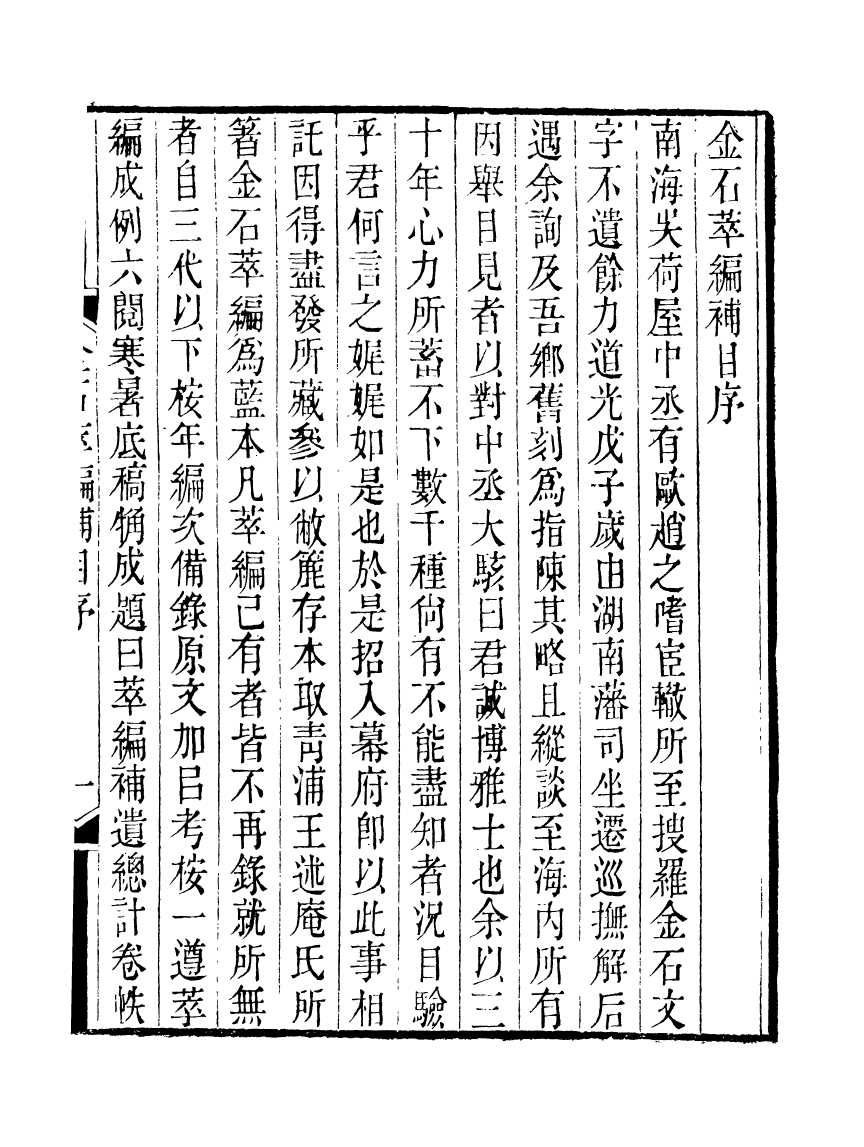 金石萃編補目序
南海吳荷屋中丞有歐趙之嗜宦轍所至搜羅金石文
字不遺餘力道光戊子歲由湖南藩司坐遷巡撫解后
遇余詢及吾鄉舊刻爲指陳其略且縱談至海内所有
因舉目見者以對中丞大駭曰君誠博雅士也余以三
十年心力所蓄不下數千種尙有不能盡知者況目驗
乎君何言之娓娓如是也於是招入幕府卽以此事相
託因得盡發所藏參以敝簏存本取靑浦王述庵氏所
箸金石萃編爲藍本凡萃編已有者皆不再錄就所無
者自三代以下桉年編次備錄原文加㠯考桉一遵萃
編成例六閱寒暑底稿觕成題曰萃編補遺總計卷帙
金石萃編補目序
一